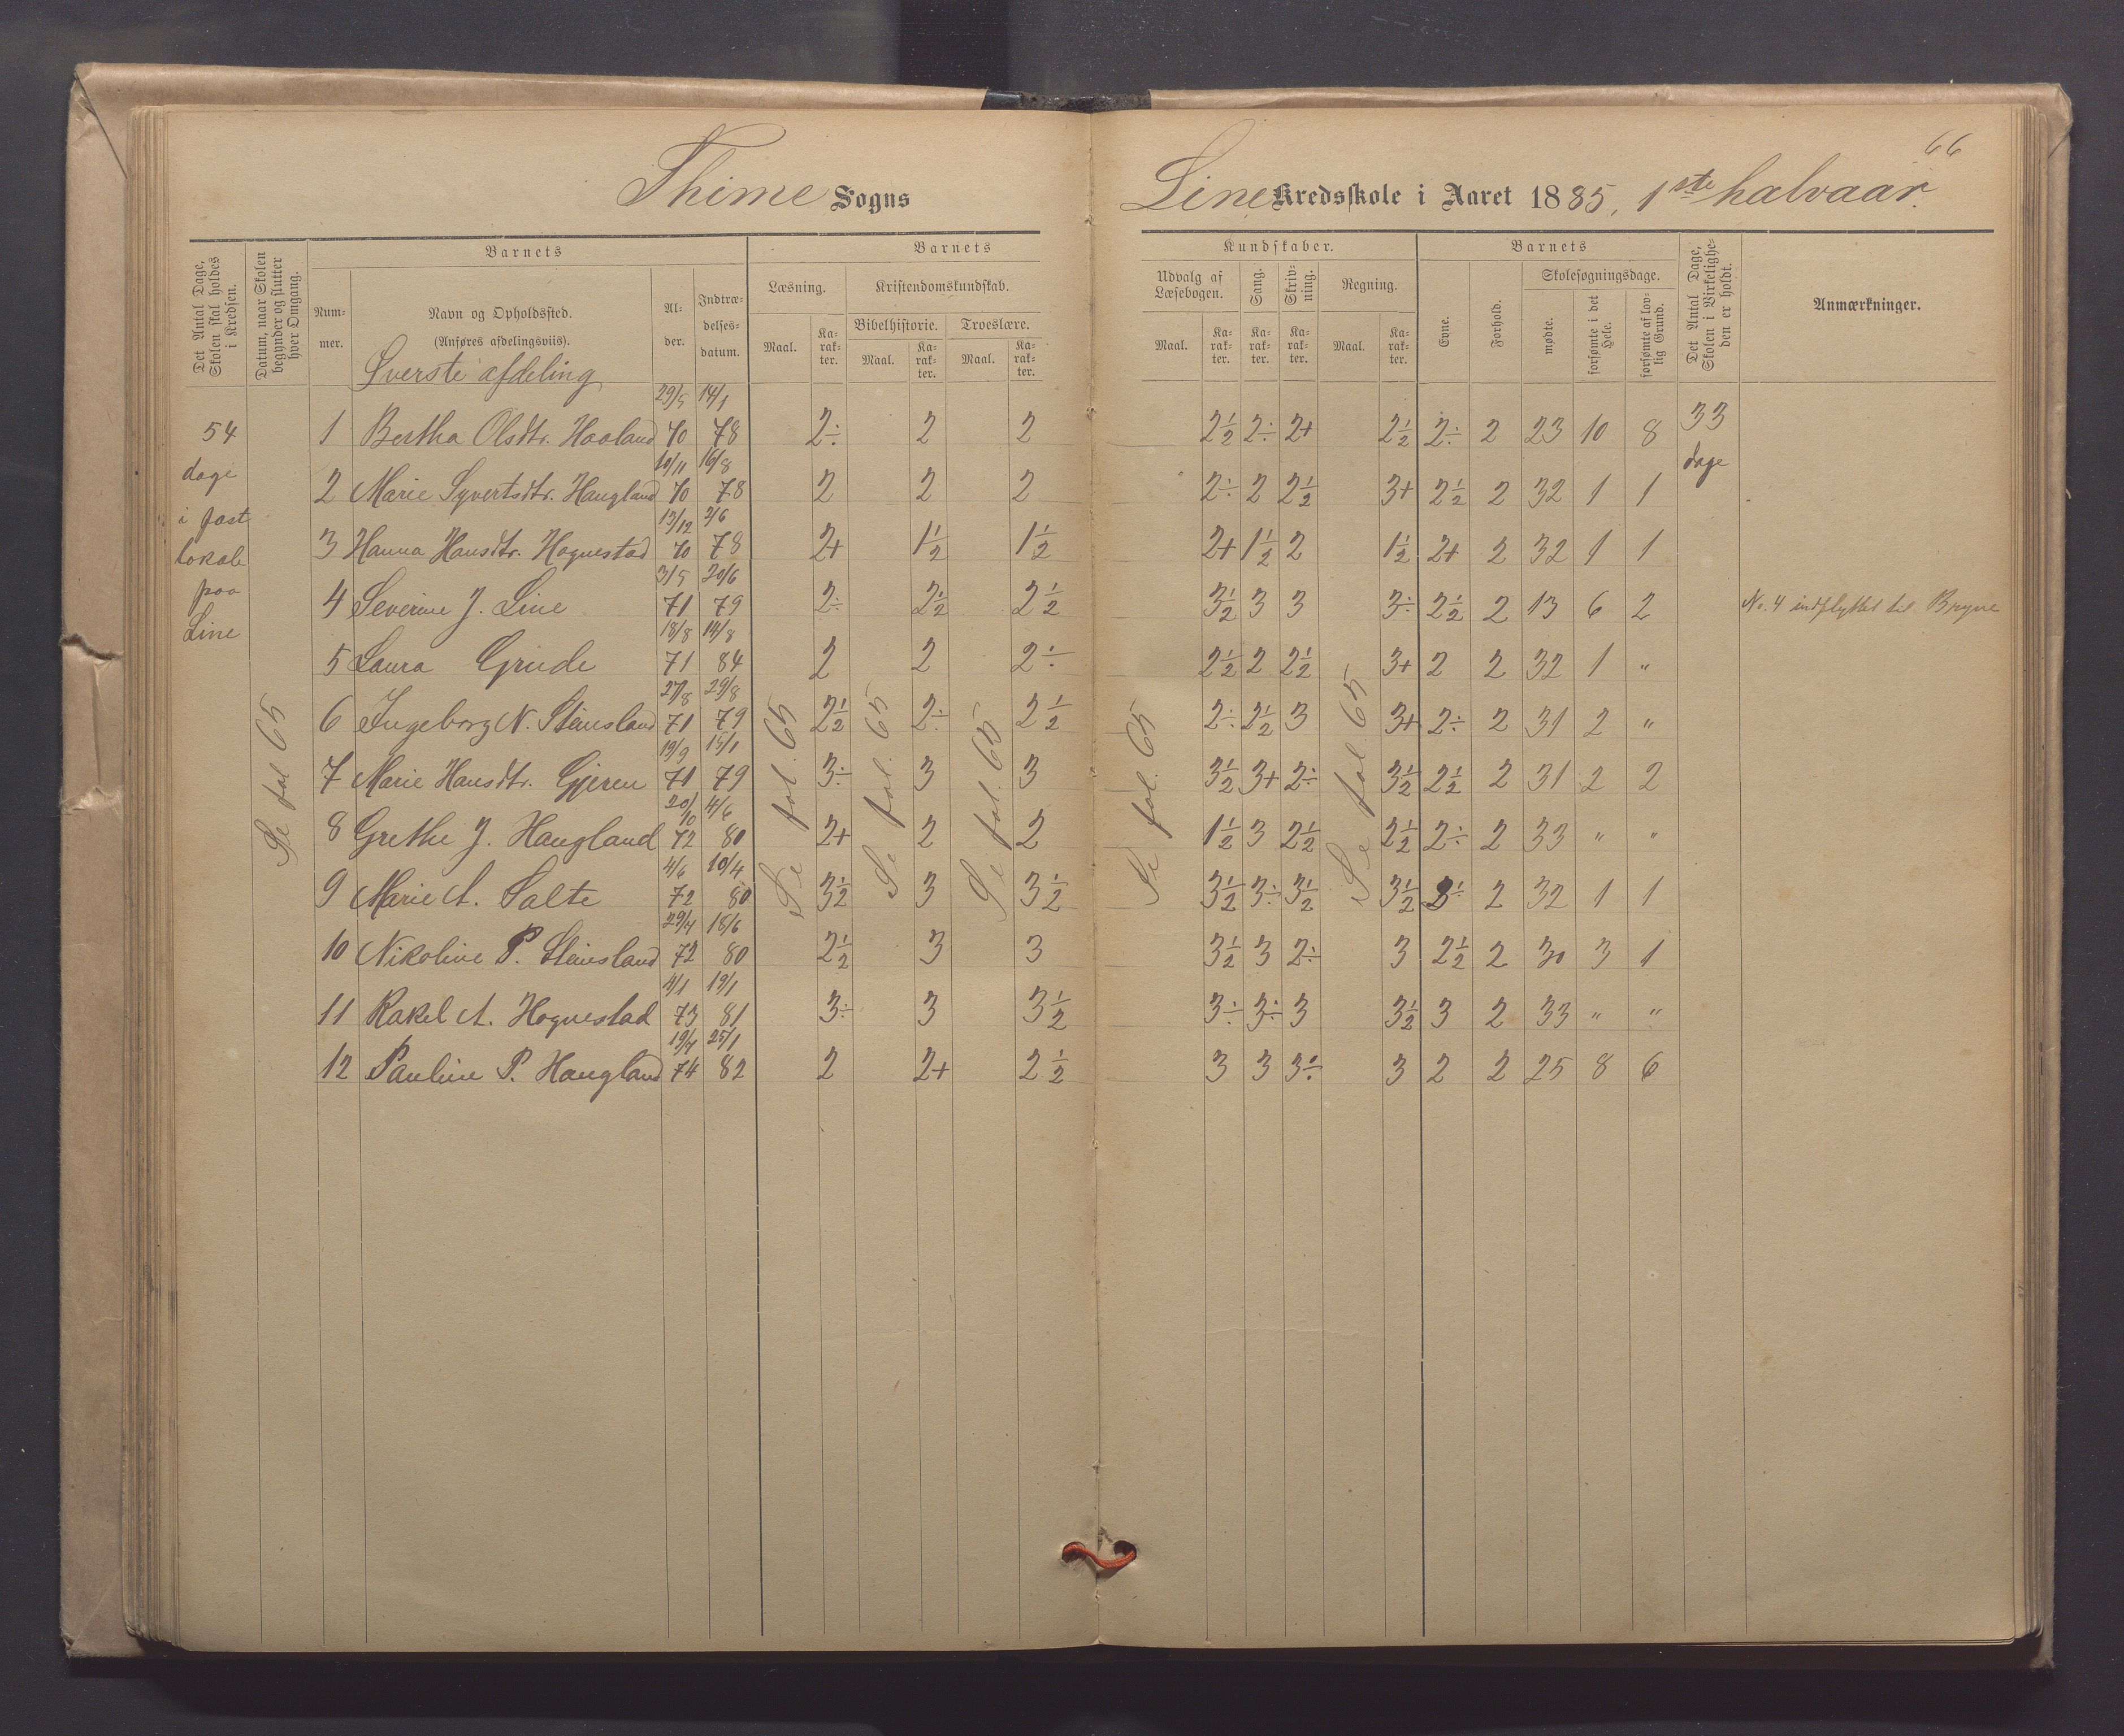 66
Thime Sogns Line Kredsskole i Aaret 1885, 1ste halvaar.
Det Antal Dage, Skolen skal holdes i Kredsen.
Datum, naar Skolen begynder og slutter hver Omgang.
Barnets
Nummer.
Navn og Opholdssted.
(Anføres afdelingsviis).
Alder.
Indtrædelsesdatum.
Barnets Kundskaber.
Læsning.
Maal. Karakter.
Kristendomskundskab.
Bibelhistorie. Troeslære.
Maal. Karakter. Maal. Karakter.
Udvalg af Læsebogen.
Maal. Karakter.
Sang. Karakter.
Skrivning. Karakter.
Regning.
Maal. Karakter.
Barnets
Evne. Forhold.
Skolesøgningsdage.
mødte. forsømte i det Hele. forsømte af lovlig Grund.
Det Antal Dage, Skolen i Virkeligheden er holdt.
Anmærkninger.
Øverste afdeling
54 dage i fast lokale paa Line
Se fol 65
Se fol. 65
Se fol. 65
Se fol. 65
Se fol. 65
Se fol 65
33 dage
1 Bertha Olsdtr. Haaland 29/5 70 14/1 78 2÷ 2 2 2½ 2÷ 2+ 2½ 2÷ 2 23 10 8
2 Marie Syvertsdtr. Haugland 10/11 70 16/8 78 2 2 2 2÷ 2 2½ 3+ 2½ 2 32 1 1
3 Hanna Hansdtr. Hognestad 13/12 70 2/6 78 2+ 1½ 1½ 2+ 1½ 2 1½ 2+ 2 32 1 1
4 Severine J. Line 3/5 71 20/6 79 2÷ 2½ 2½ 3½ 3 3 3÷ 2½ 2 13 6 2 No. 4 indflyttet til Bryne
5 Laura Grude 18/8 71 14/8 84 2 2 2÷ 2½ 2 2½ 3+ 2 2 32 1 "
6 Ingeborg N. Stensland 27/8 71 29/8 79 2½ 2÷ 2½ 2÷ 2½ 3 3+ 2÷ 2 31 2 "
7 Marie Hansdtr. Gjeren 19/9 71 15/1 79 3÷ 3 3 3½ 3+ 2÷ 3½ 2½ 2 31 2 2
8 Grethe J. Haugland 20/10 72 4/6 80 2+ 2 2 1½ 3 2½ 2½ 2÷ 2 33 " "
9 Marie A. Salte 4/6 72 10/4 80 3½ 3 3½ 3½ 3÷ 3½ 3½ 3÷ 2 32 1 1
10 Nikoline P. Stensland 29/4 72 18/6 80 2½ 3 3 3½ 3 2÷ 3 2½ 2 30 3 1
11 Rakel A. Hognestad 4/1 73 19/1 81 3÷ 3 3½ 3÷ 3÷ 3 3½ 3 2 33 " "
12 Pauline P. Haugland 19/4 74 25/1 82 2 2+ 2½ 3 3 3÷ 3 2 2 25 8 6